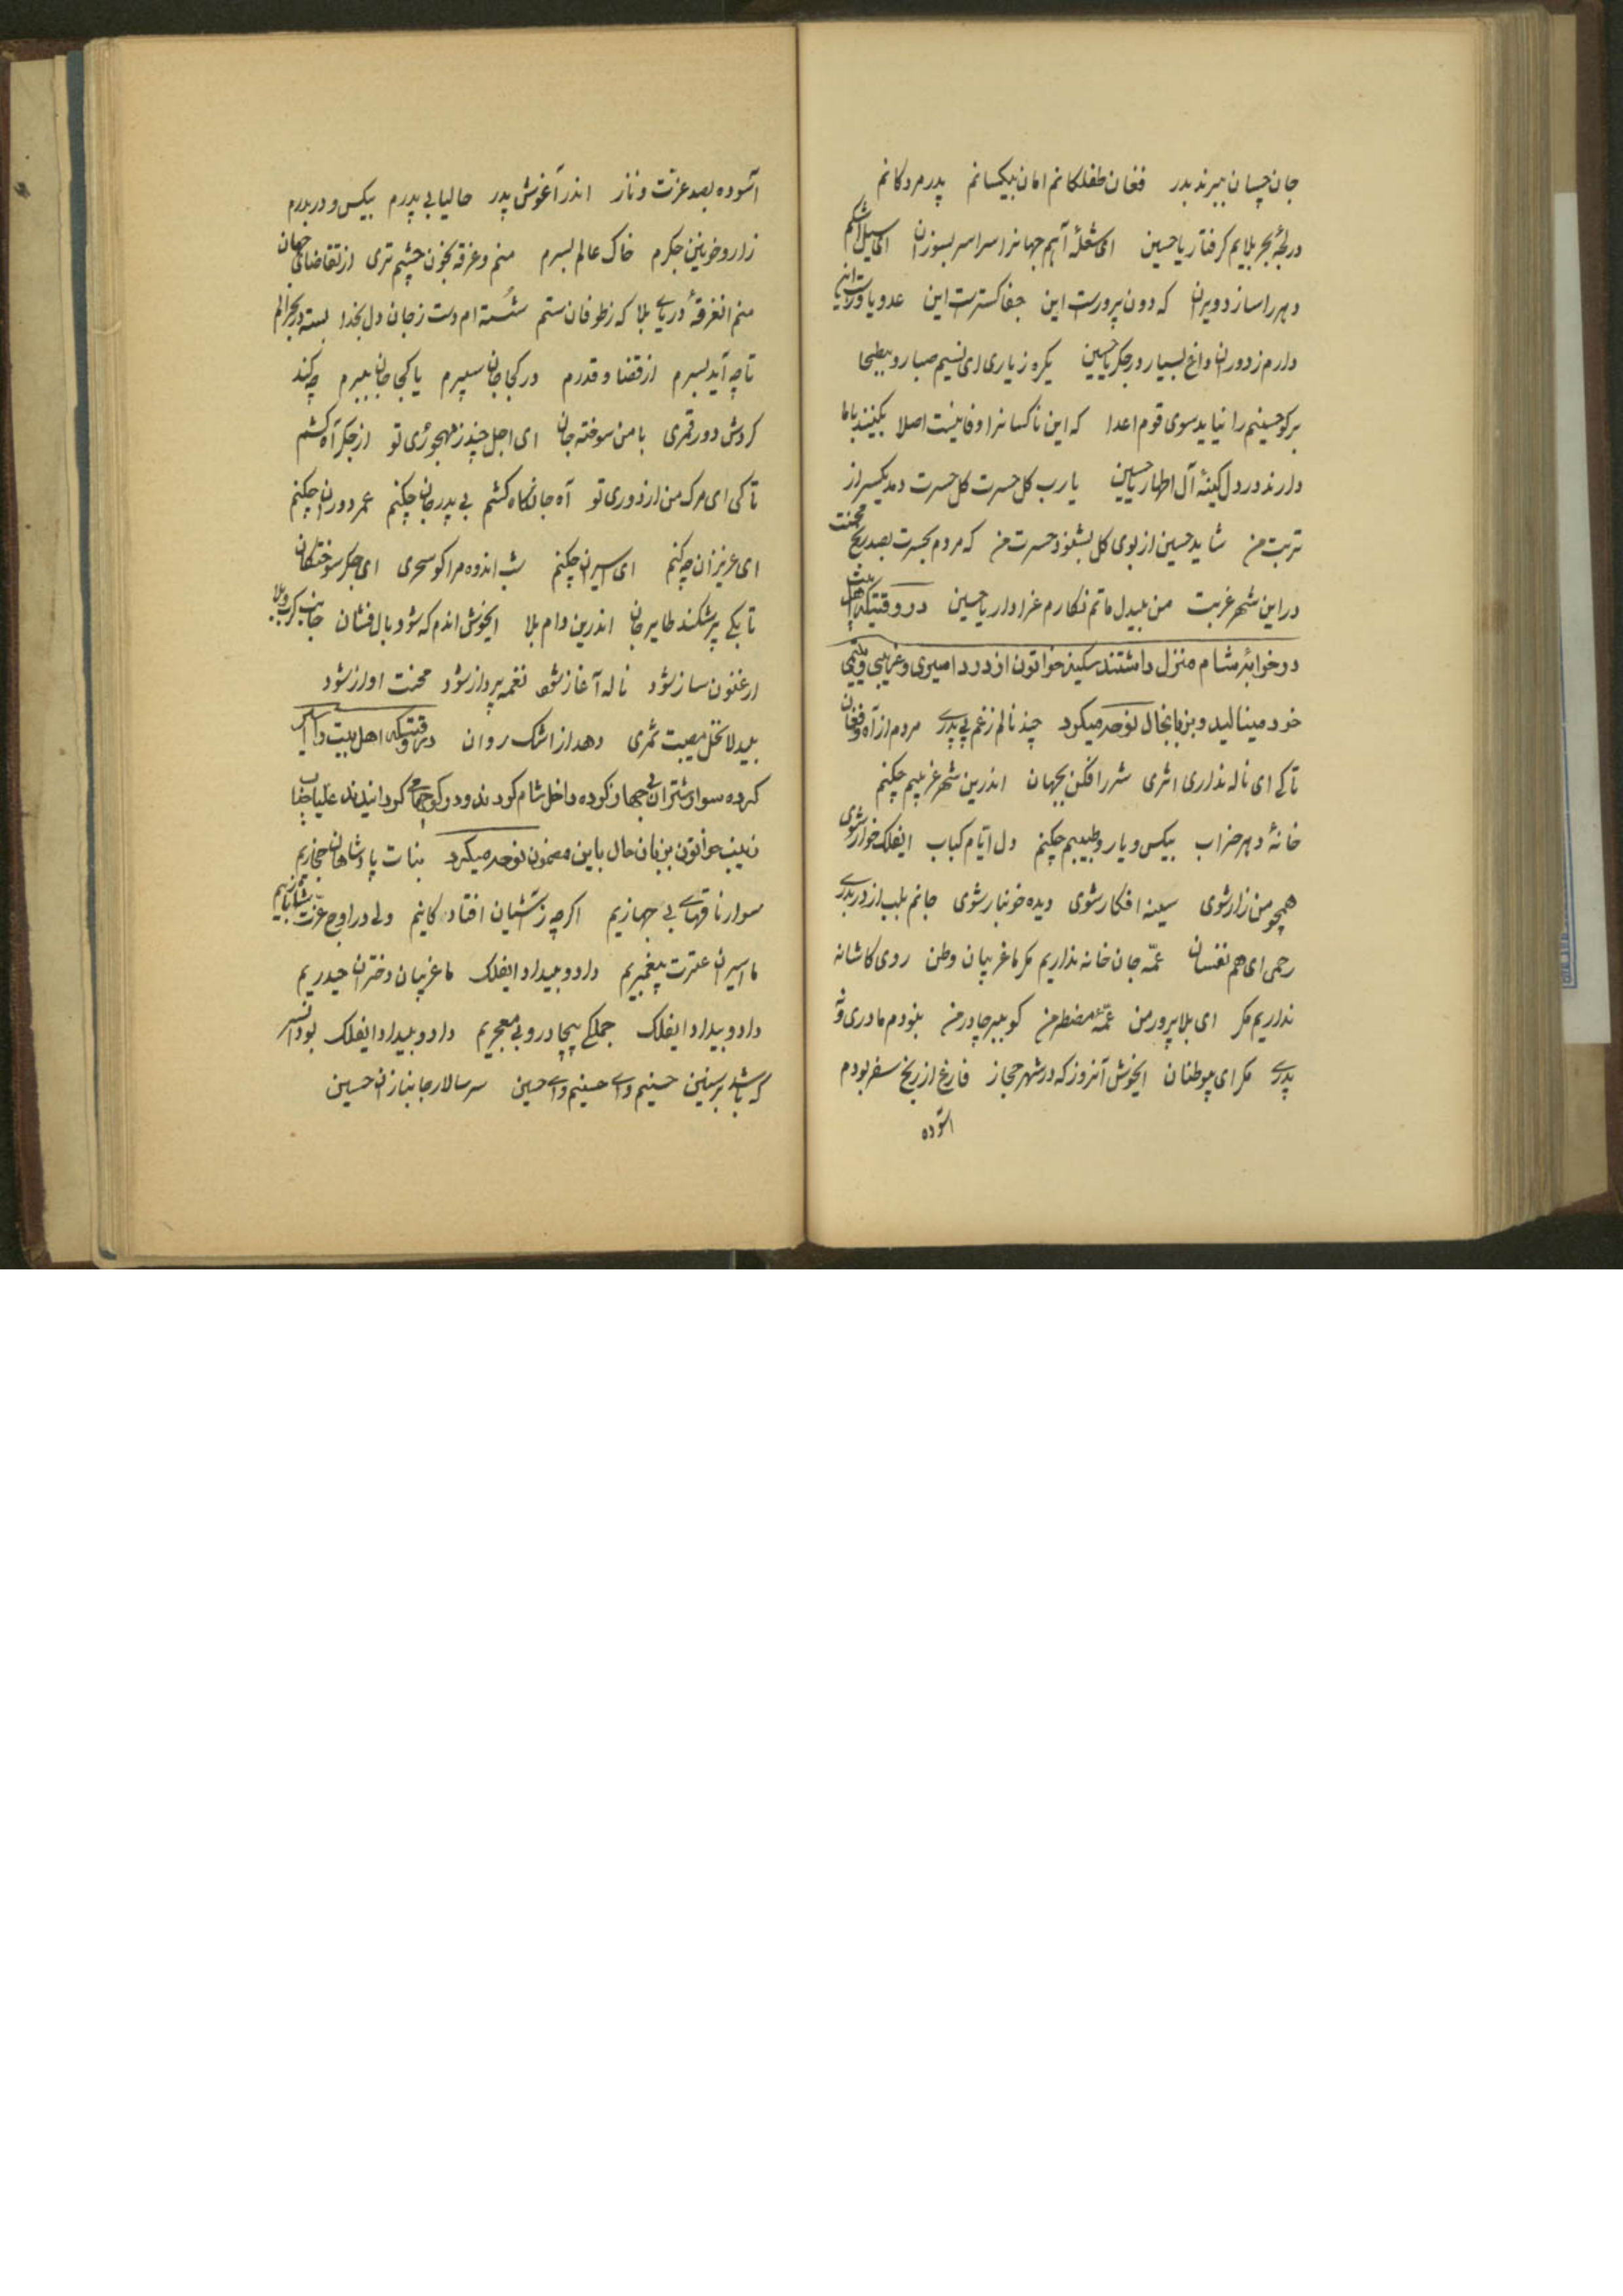 جان چسان ببرند بدر فغان طفلکانم امان بیکسانم پدر مردکانم
در لجهٔ بحر بلایم کرفتار یا حسین ای شعلهٔ آهم جهانرا سراسر بسوزان ای سیل اشکم
دهر را ساز د ویران که دون پرورست این جفا کسترست این عدو یاورست این
دارم ز دوران داغ بسیار در جکر یا حسین یکره ز یاری ای نسیم صبا رو ببطحا
برکو حسینم را نیاید سوی قوم اعدا که این ناکسانرا وفا نیست اصلا بکینند باما
دارند در دل کینهٔ آل اطهار یا حسین یا رب کل حسرت کل حسرت دمد یکسر از
تربت من شاید حسین از بوی کل بشنود حسرت من که مردم بحسرت بصد رنج محنت
در این شهر غربت من بیدل ماتم نکارم عزادار یا حسین در وقتیکه اهل بیت
در خرابهٔ شام منزل داشتند سکینه خواتون از درد اسیری و غریبی و یتیمی
خود مینالید و بزبانحال نوحه میکرد چند نالم ز غم بی پدری مردم از آه و فغان
تا کی ای ناله نداری اثری شرر افکن بجهان اندرین شهر غریبم چکنم
خانهٔ دهر خراب بیکس و یار و طبیبم چکنم دل ایام کباب ایفلک خوار شوی
همچو من زار شوی سینه افکار شوی دیده خونبار شوی جانم بلب از در بدری
رحمی ای هم نفسان عمّه جان خانه نداریم مکر ما غریبان وطن روی کاشانه
نداریم مکر ای بلا پرور من عمّهٔ مضطر من کو ببر چادر من نبودم مادری و نه
پدری مکر ای هموطنان ایخوش آنروز که در شهر حجاز فارغ از رنج سفر بودم
آسوده
آسوده بصد عزّت و ناز اندر آغوش پدر حالیا بی پدرم بیکس و در بدرم
زار و خونین جکرم خاک عالم بسرم منم و غرقه بخون چشم تری از تقاضای جهان
منم انغرقهٔ دریای بلا که ز طوفان ستم شسته ام دست ز جان دل بخدا بسته در بحر الم
تا چه آید بسرم از قضا و قدرم در کجا جان سپرم یا کجا جان ببرم چه کند
کردش دور قمری با من سوخته جان ای اجل چند ز مهجوری تو از جکر آه کشم
تا کی ای مرک من از دوری تو آه جانکاه کشم بی پدر جان چکنم عمر دوران چکنم
ای عزیزان چه کنم ای اسیران چکنم شب اندوه مرا کو سحری ای جکر سوختکان
تا بکی پر شکند طایر جان اندرین دام بلا ایخوش اندم که شود بال فشان جانب کرب و بلا
ارغنون ساز شود ناله آغاز شود نغمه پرداز شود محنت اواز شود
بیدلا نخل مصیبت ثمری دهد از اشک روان در وقتیکه اهل بیت را اسیر
کرده سوار شتران بی جهاز کرده داخل شام کردند و در کوچها می کردانیدند علیا جناب
زینب خواتون بزبان حال باین مضمون نوحه میکرد بنات پادشاهان حجازیم
سوار ناقهای بی جهازیم اکرچه ز آشیان افتاد کانیم ولی در اوج عزّت شاهبازیم
ما اسیران عترت پیغمبریم داد و بیداد ایفلک ما غریبان دختران حیدریم
داد و بیداد ایفلک جملکی بیچادر و بی معجریم داد و بیداد ایفلک بود اسیر
که باشد بر سنین حسینم وای حسینم وای حسین سر سالار جانبازان حسین